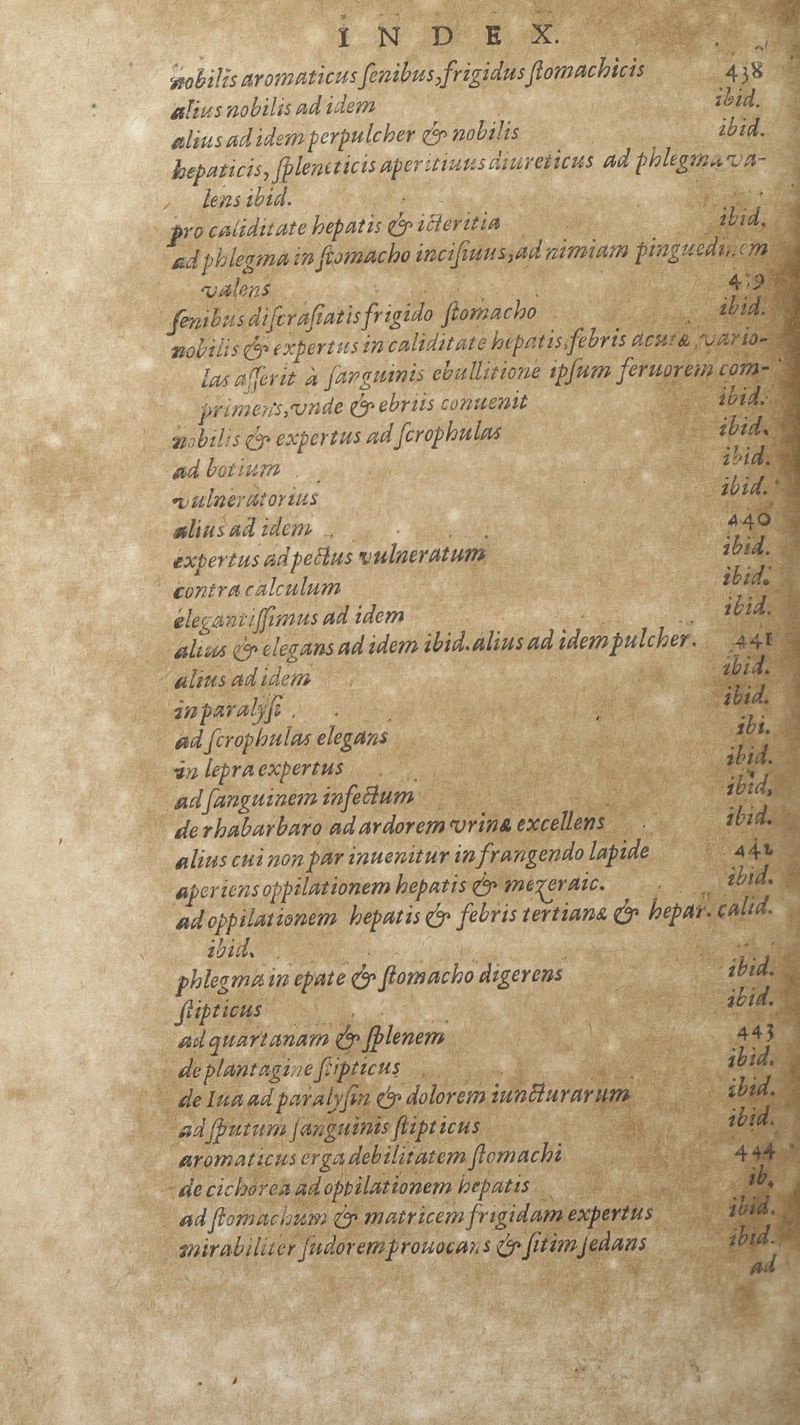 INDEX.
nobilis aromaticus ſenibus, frigidus ſtomachicis 438
alius nobilis ad idem ibid.
alius ad idem perpulcher & nobilis ibid.
hepaticis, ſpleneticis aperitiuus diureticus ad phlegma va-
lens ibid.
pro caliditate hepatis & icteritia ibid.
ad phlegma in ſtomacho inciſiuus, ad nimiam pinguedinem
valens 439
ſenibus diſcraſiatis frigido ſtomacho ibid.
nobilis & expertus in caliditate hepatis, febris acutæ, vario-
las aſſerit à ſanguinis ebullitione ipſum feruorem com-
primens, vnde & ebriis conuenit ibid.
nobilis & expertus ad ſcrophulas ibid.
ad botium ibid.
vulneratorius ibid.
alius ad idem 440
expertus ad pectus vulneratum ibid.
contra calculum ibid.
elegantiſſimus ad idem ibid.
alius & elegans ad idem ibid. alius ad idem pulcher. 441
alius ad idem ibid.
in paralyſi. ibid.
ad ſcrophulas elegans ibi.
in lepra expertus ibid.
ad ſanguinem infectum ibid,
de rhabarbaro ad ardorem vrinæ excellens ibid.
alius cui non par inuenitur in frangendo lapide 442
aperiens oppilationem hepatis & mezeraic. ibid.
ad oppilationem hepatis & febris tertianæ & hepar. calid.
ibid.
phlegma in epate & ſtomacho digerens ibid.
ſtipticus ibid.
ad quartanam & ſplenem 443
de plantagine ſtipticus ibid.
de Iua ad paralyſin & dolorem iuncturarum ibid.
ad ſputum ſanguinis ſtipticus ibid.
aromaticus erga debilitatem ſtomachi 444
de cichorea ad oppilationem hepatis ib.
ad ſtomachum & matricem frigidam expertus ibid.
mirabiliter ſudorem prouocans & ſitim ſedans ibid.
ad